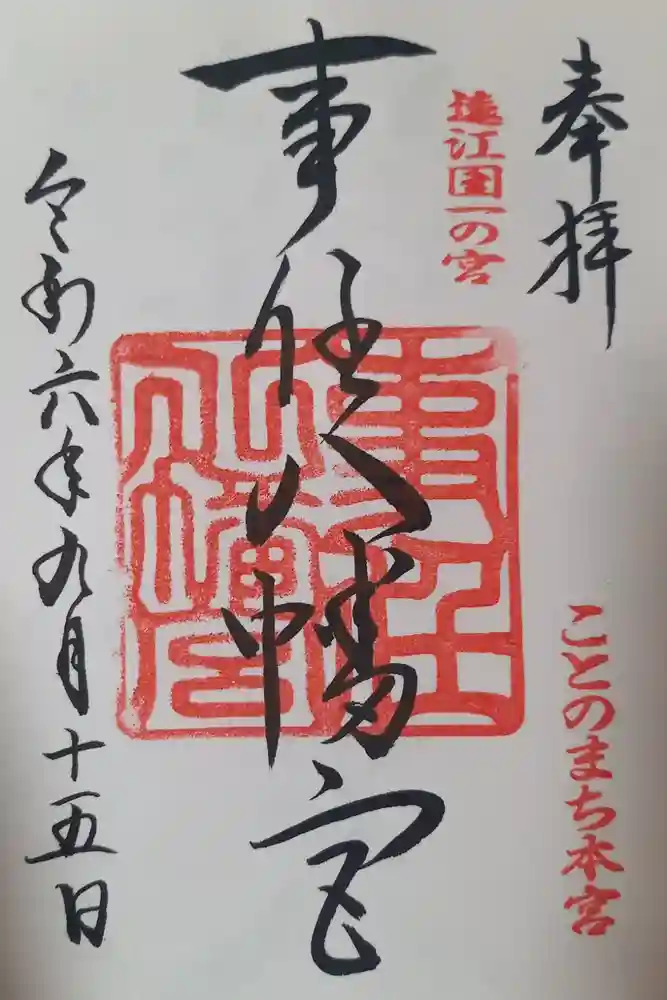 奉拝
遠江国一の宮
ことのまち本宮
事任八幡宮
事任八幡宮
令和六年九月十五日